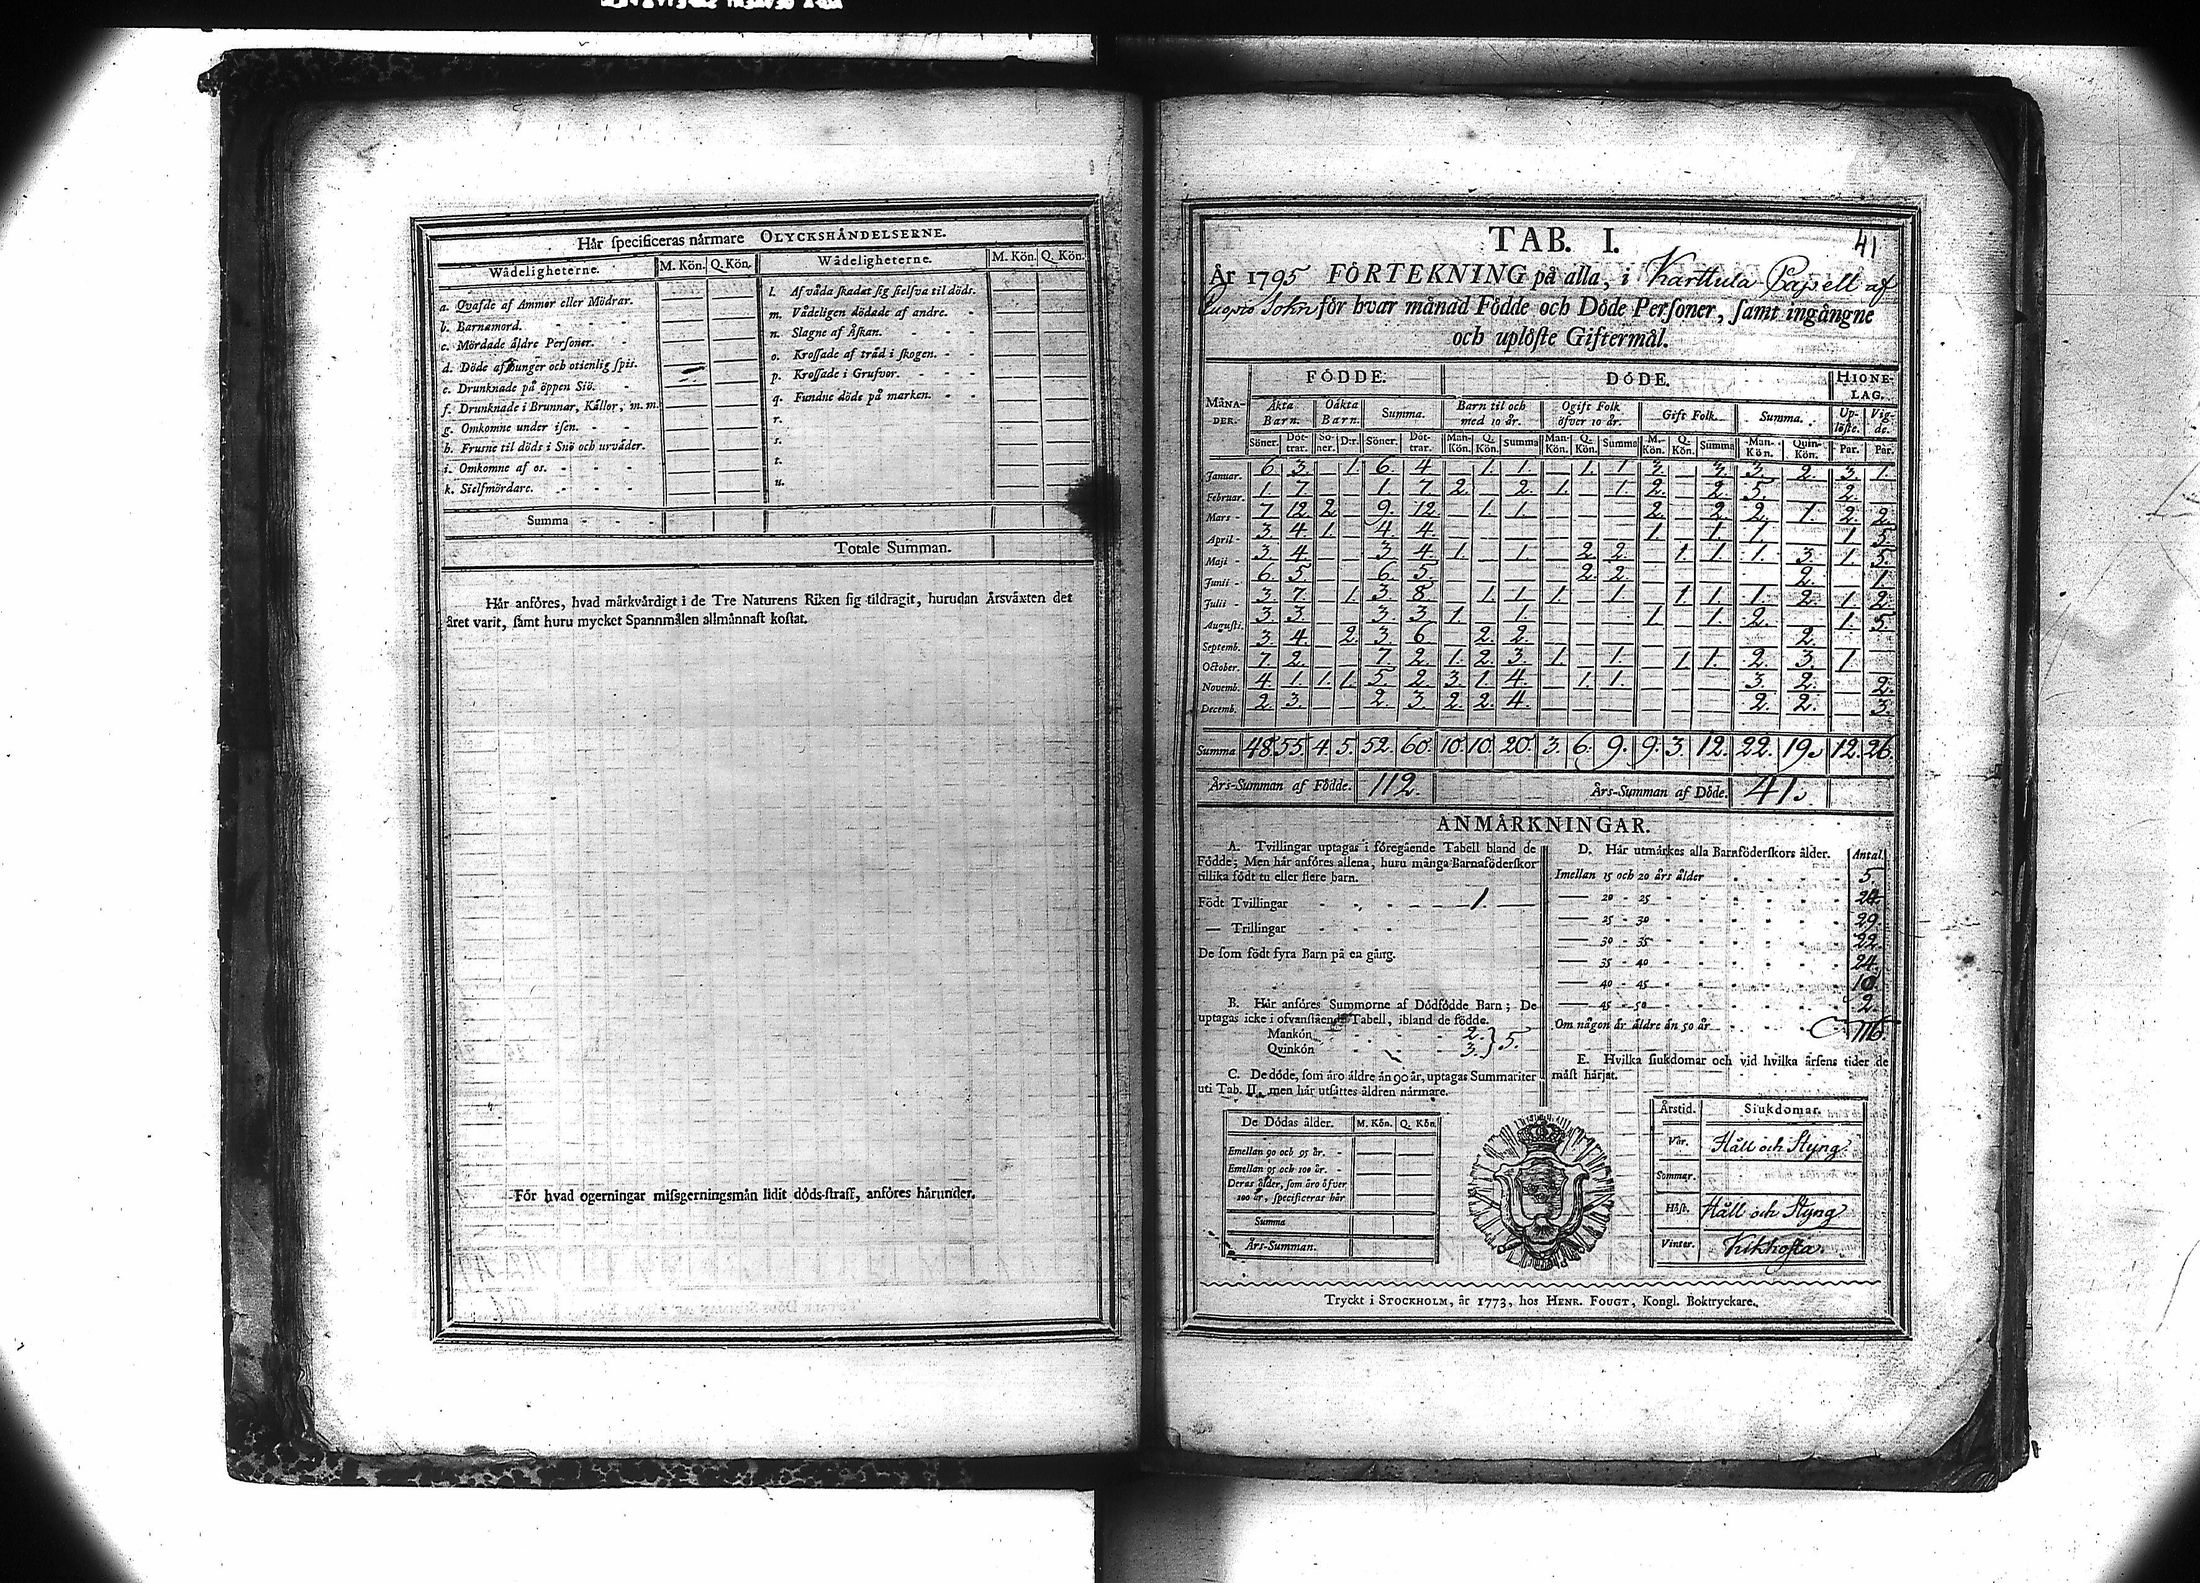 Hår ſpecificeras nårmare OLYCKSHÅNDELSERNE.
Wådeligheterne. M. Kön. Q. Kön. Wådeligheterne. M. Kön. Q. Kön.
a. Qvafde af Ammor eller Mödrar. l. Af våda ſkadat ſig ſielfva til döds.
b. Barnamord. m. Vådeligen dödade af andre.
c. Mördade åldre Perſoner. n. Slagne af Åſkan.
d. Döde af hunger och otienlig ſpis. o. Kroſſade af tråd i ſkogen.
e. Drunknade på öppen Siö. p. Kroſſade i Grufvor.
f. Drunknade i Brunnar, Kållor, m. m. q. Fundne döde på marken.
g. Omkomne under iſen. r.
h. Fruſne til döds i Snö och urvåder. s.
i. Omkomne af os. t.
k. Sielfmördare. u.
Summa
Totale Summan.
Hår anföres, hvad mårkvårdigt i de Tre Naturens Riken ſig tildragit, hurudan Årsvåxten det
året varit, ſamt huru mycket Spannmålen allmånnaſt koſtat.
För hvad ogerningar miſsgerningsmån lidit döds-ſtraff, anföres hårunder.
41
TAB. I.
År 1795 FÖRTEKNING på alla, i Karttula Capell af
Cuopio Sokn för hvar månad Födde och Döde Perſoner, ſamt ingångne
och uplöſte Giftermål.
FÖDDE. DÖDE. HIONE-
LAG.
MÅNA-
DER. Åkta Barn. Oåkta Barn. Summa. Barn til och med 10 år. Ogift Folk öfver 10 år. Gift Folk. Summa. Up-löſte. Vig-de.
Söner. Döt-trar. So-ner. D:r. Söner. Döt-trar. Man-Kön. Q. Kön. Summa Man-Kön. Q. Kön. Summa M. Kön. Q. Kön. Summa Man-Kön. Quin-Kön. Par. Par.
Januar. 6. 3. — 1. 6. 4. — 1. 1. — 1. 1. 3. — 3. 3. 2. 3. 1.
Februar. 1. 7. — — 1. 7. 2. — 2. 1. — 1. 2. — 2. 5. — 2. —
Mars 7. 12. 2. — 9. 12. — 1. 1. — — — 2. — 2. 2. 1. 2. 2.
April 3. 4. 1. — 4. 4. — — — — — — 1. — 1. 1. — 1. 5.
Maji 3. 4. — — 3. 4. 1. — 1. — 2. 2. — 1. 1. 1. 3. 1. 5.
Junii 6. 5. — — 6. 5. — — — — 2. 2. — — — — 2. — 1.
Julii 3. 7. — 1. 3. 8. — 1. 1. 1. — 1. — 1. 1. 1. 2. 1. 2.
Auguſti. 3. 3. — — 3. 3. 1. — 1. — — — 1. — 1. 2. — 1. 5.
Septemb. 3. 4. — 2. 3. 6. — 2. 2. — — — — — — — 2. — —
October. 7. 2. — — 7. 2. 1. 2. 3. 1. — 1. — 1. 1. 2. 3. 1. —
Novemb. 4. 1. 1. 1. 5. 2. 3. 1. 4. — 1. 1. — — — 3. 2. — 2.
Decemb. 2. 3. — — 2. 3. 2. 2. 4. — — — — — — 2. 2. — 3.
Summa 48. 55. 4. 5. 52. 60. 10. 10. 20. 3. 6. 9. 9. 3. 12. 22. 19. 12. 26.
Års-Summan af Födde. 112. Års-Summan af Döde. 41.
ANMÅRKNINGAR.
A. Tvillingar uptagas i föregående Tabell bland de
Födde; Men hår anföres allena, huru många Barnaföderſkor
tillika födt tu eller flere barn.
Födt Tvillingar 1.
— Trillingar
De ſom födt fyra Barn på en gång.
B. Hår anföres Summorne af Dödfödde Barn; De
uptagas icke i ofvanſtående Tabell, ibland de födde.
Mankön 2.
Qvinkön 3. } 5.
C. De döde, ſom åro åldre ån 90 år, uptagas Summariter
uti Tab. II. men hår utſåttes åldren nårmare.
De Dödas ålder. M. Kön. Q. Kön.
Emellan 90 och 95 år.
Emellan 95 och 100 år.
Deras ålder, ſom åro öfver
100 år, ſpecificeras hår
Summa
Års-Summan.
D. Hår utmårkes alla Barnföderſkors ålder. Antal.
Imellan 15 och 20 års ålder 5.
— 20 - 25 24.
— 25 - 30 29.
— 30 - 35 22.
— 35 - 40 24.
— 40 - 45 10.
— 45 - 50 2.
Om någon år åldre ån 50 år 116.
E. Hvilka ſiukdomar och vid hvilka årſens tider de
måſt hårjat.
Årstid. Siukdomar.
Vår. Håll och Styng.
Sommar.
Höſt. Håll och Styng
Vinter. Kikhoſta.
Tryckt i STOCKHOLM, år 1773, hos HENR. FOUGT, Kongl. Boktryckare.